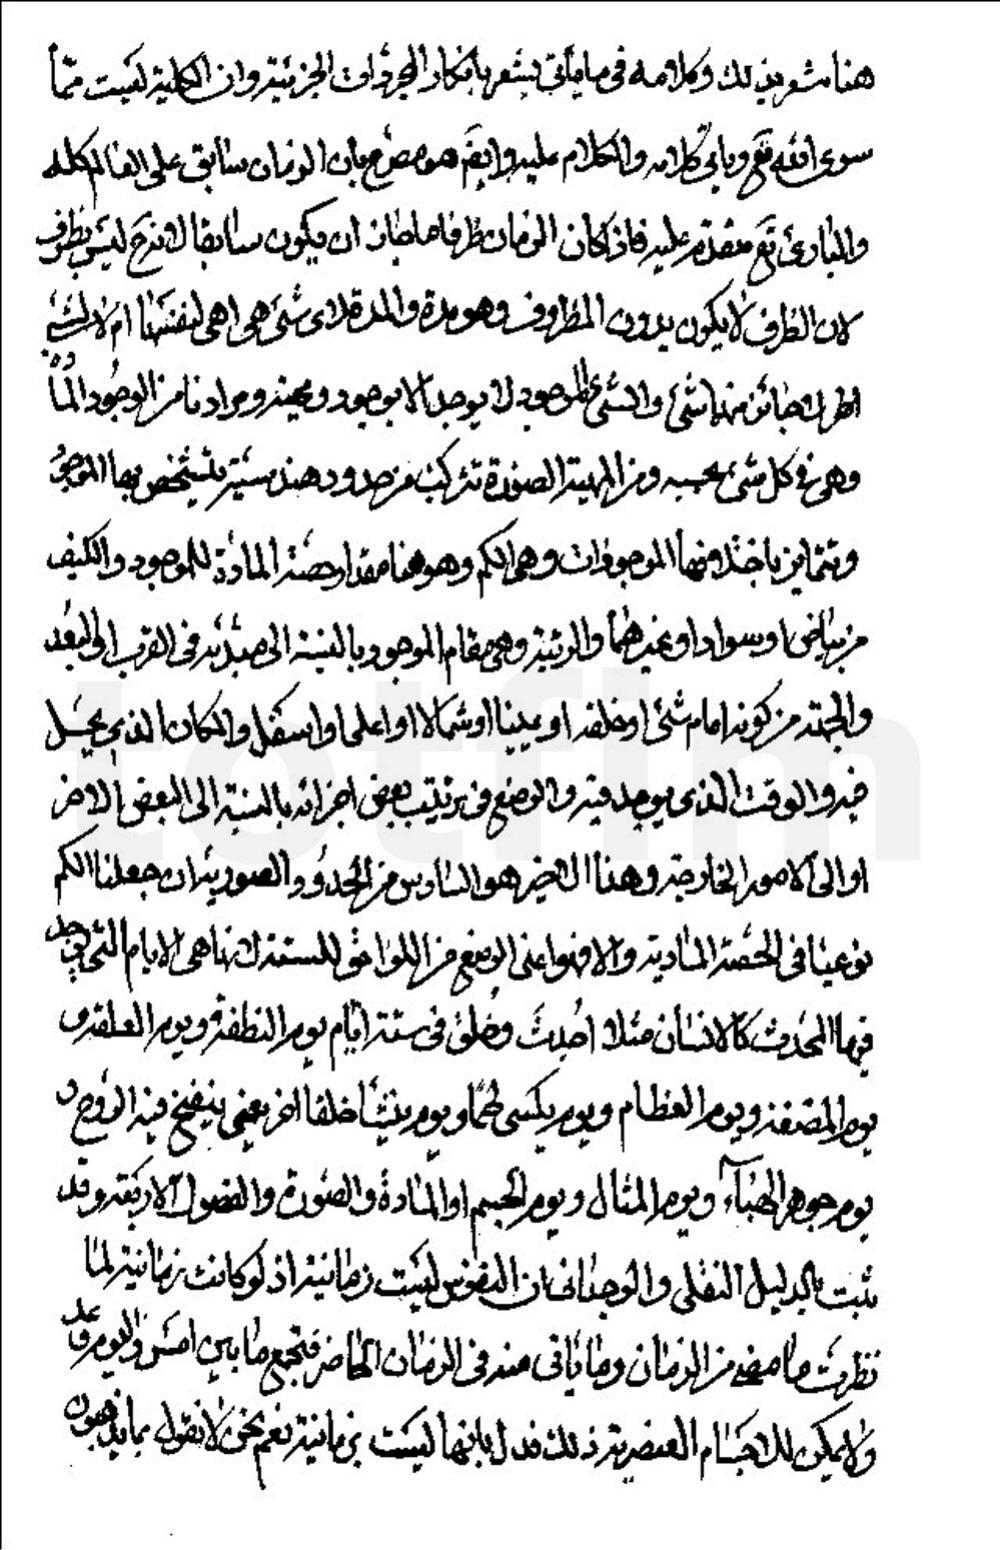 هنا مشعر بذلك وكلامه فى ما يأتى يشعر بانكار المجردات الجزئية وان الكلية ليست ممّا
سوى الله تع ويأتى كلامه والكلام عليه وايضَ هو مصرّح بان الزمان سابق على العالم كله
والبارئ تع متقدم عليه فاذا كان الزمان ظرفا ما جاز ان يكون سابقا لانه ح ليس بظرف
لان الظرف لا يكون بدون المظروف وهو مدة والمدة لاى شئ هى اهى لنفسها ام لا لشئ
شئ والشئ الموجود لا يوجد الا بوجود ومهية ومرادنا من الوجود المادة
وهى فى كل شئ بحسبه ومن المهية الصورة تتركب من حدود هندسية يتشخص بها الموجود
ويتمايز باخذه منها الموجودات وهى الكم وهو هنا مقدار حصة المادة للموجود والكيف
من بياض او سواد او غيرهما والرتبة وهى مقام الموجود بالنسبة الى مبدئه فى القرب او البعد
والجهة من كونه امام شئ او خلفه او يمينا او شمالا او اعلى او اسفل والمكان الذى يحل
فيه والوقت الذى يوجد فيه والوضع فى ترتيب بعض اجزائه بالنسبة الى البعض الاخر
او الى الامور الخارجة وهذا الاخير هو السادس من الحدود الصورية ان جعلنا الكم
نوعيا فى الحصة المادية والا فهو اعنى الوضع من اللواحق للستة لانها هى الايام التى يوجد
فيها المحدث كالانسان مثلا احدث وخلق فى ستة ايّام يوم النطفة ويوم العلقة و
يوم المضغة ويوم العظام ويوم يكسى لحمًا ويوم ينشأ خلقا اخر يعنى ينفخ فيه الروح و
يوم جوهر الهباء ويوم المثال ويوم الجسم او المادة والصورة والفصول الاربعة وقد
ثبت بالدليل النقلى والوجدانى ان النفوس ليست زمانية اذ لو كانت زمانية لما
نظرت ما مضى من الزمان وما يأتى منه فى الزمان الحاضر فتجمع ما بين امس واليوم وغد
ولا يمكن للاجسام العنصرية ذلك فدل بانها ليست بزمانية نعم نحن لا نقول بما يذهبون